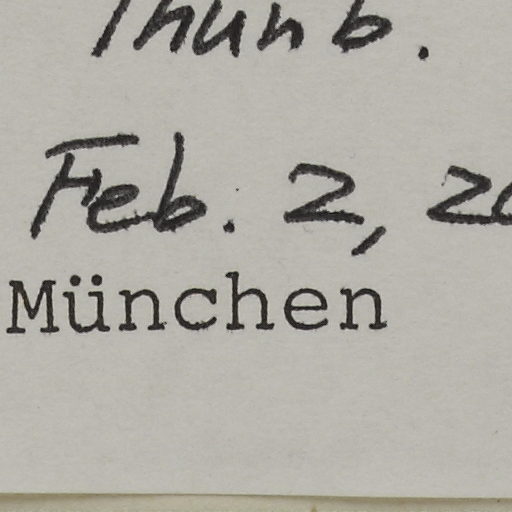 Thunb.
Feb. 2, 20
München